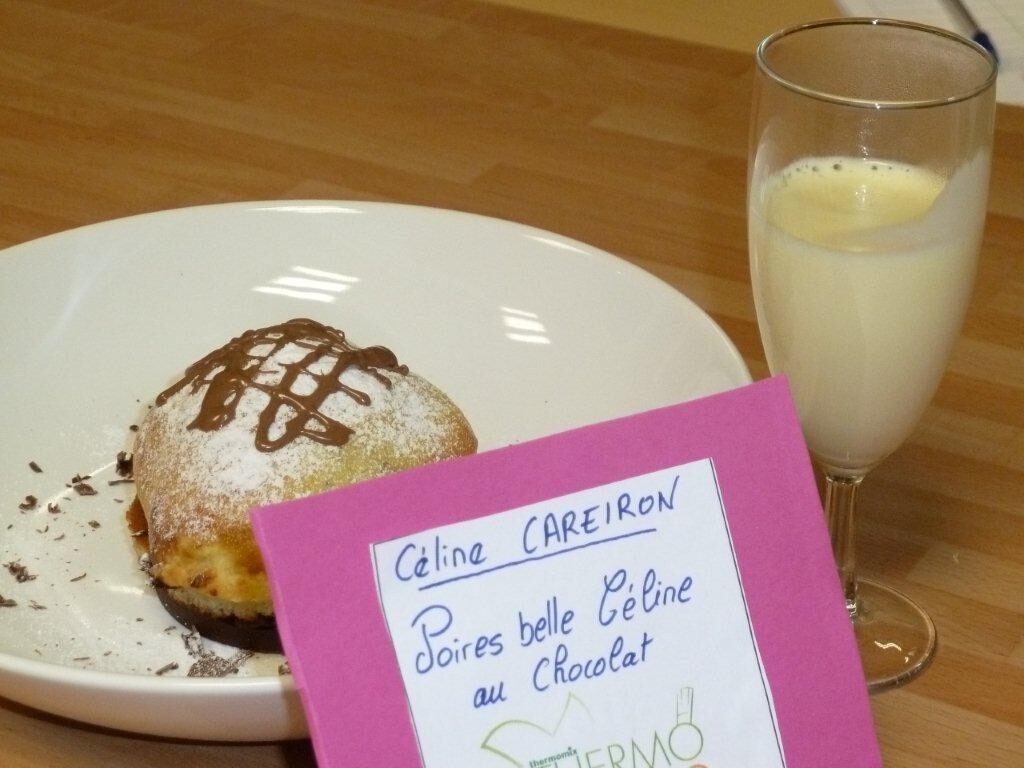 Céline CAREIRON
Poires belle Céline
au Chocolat
thermomix
THERMO